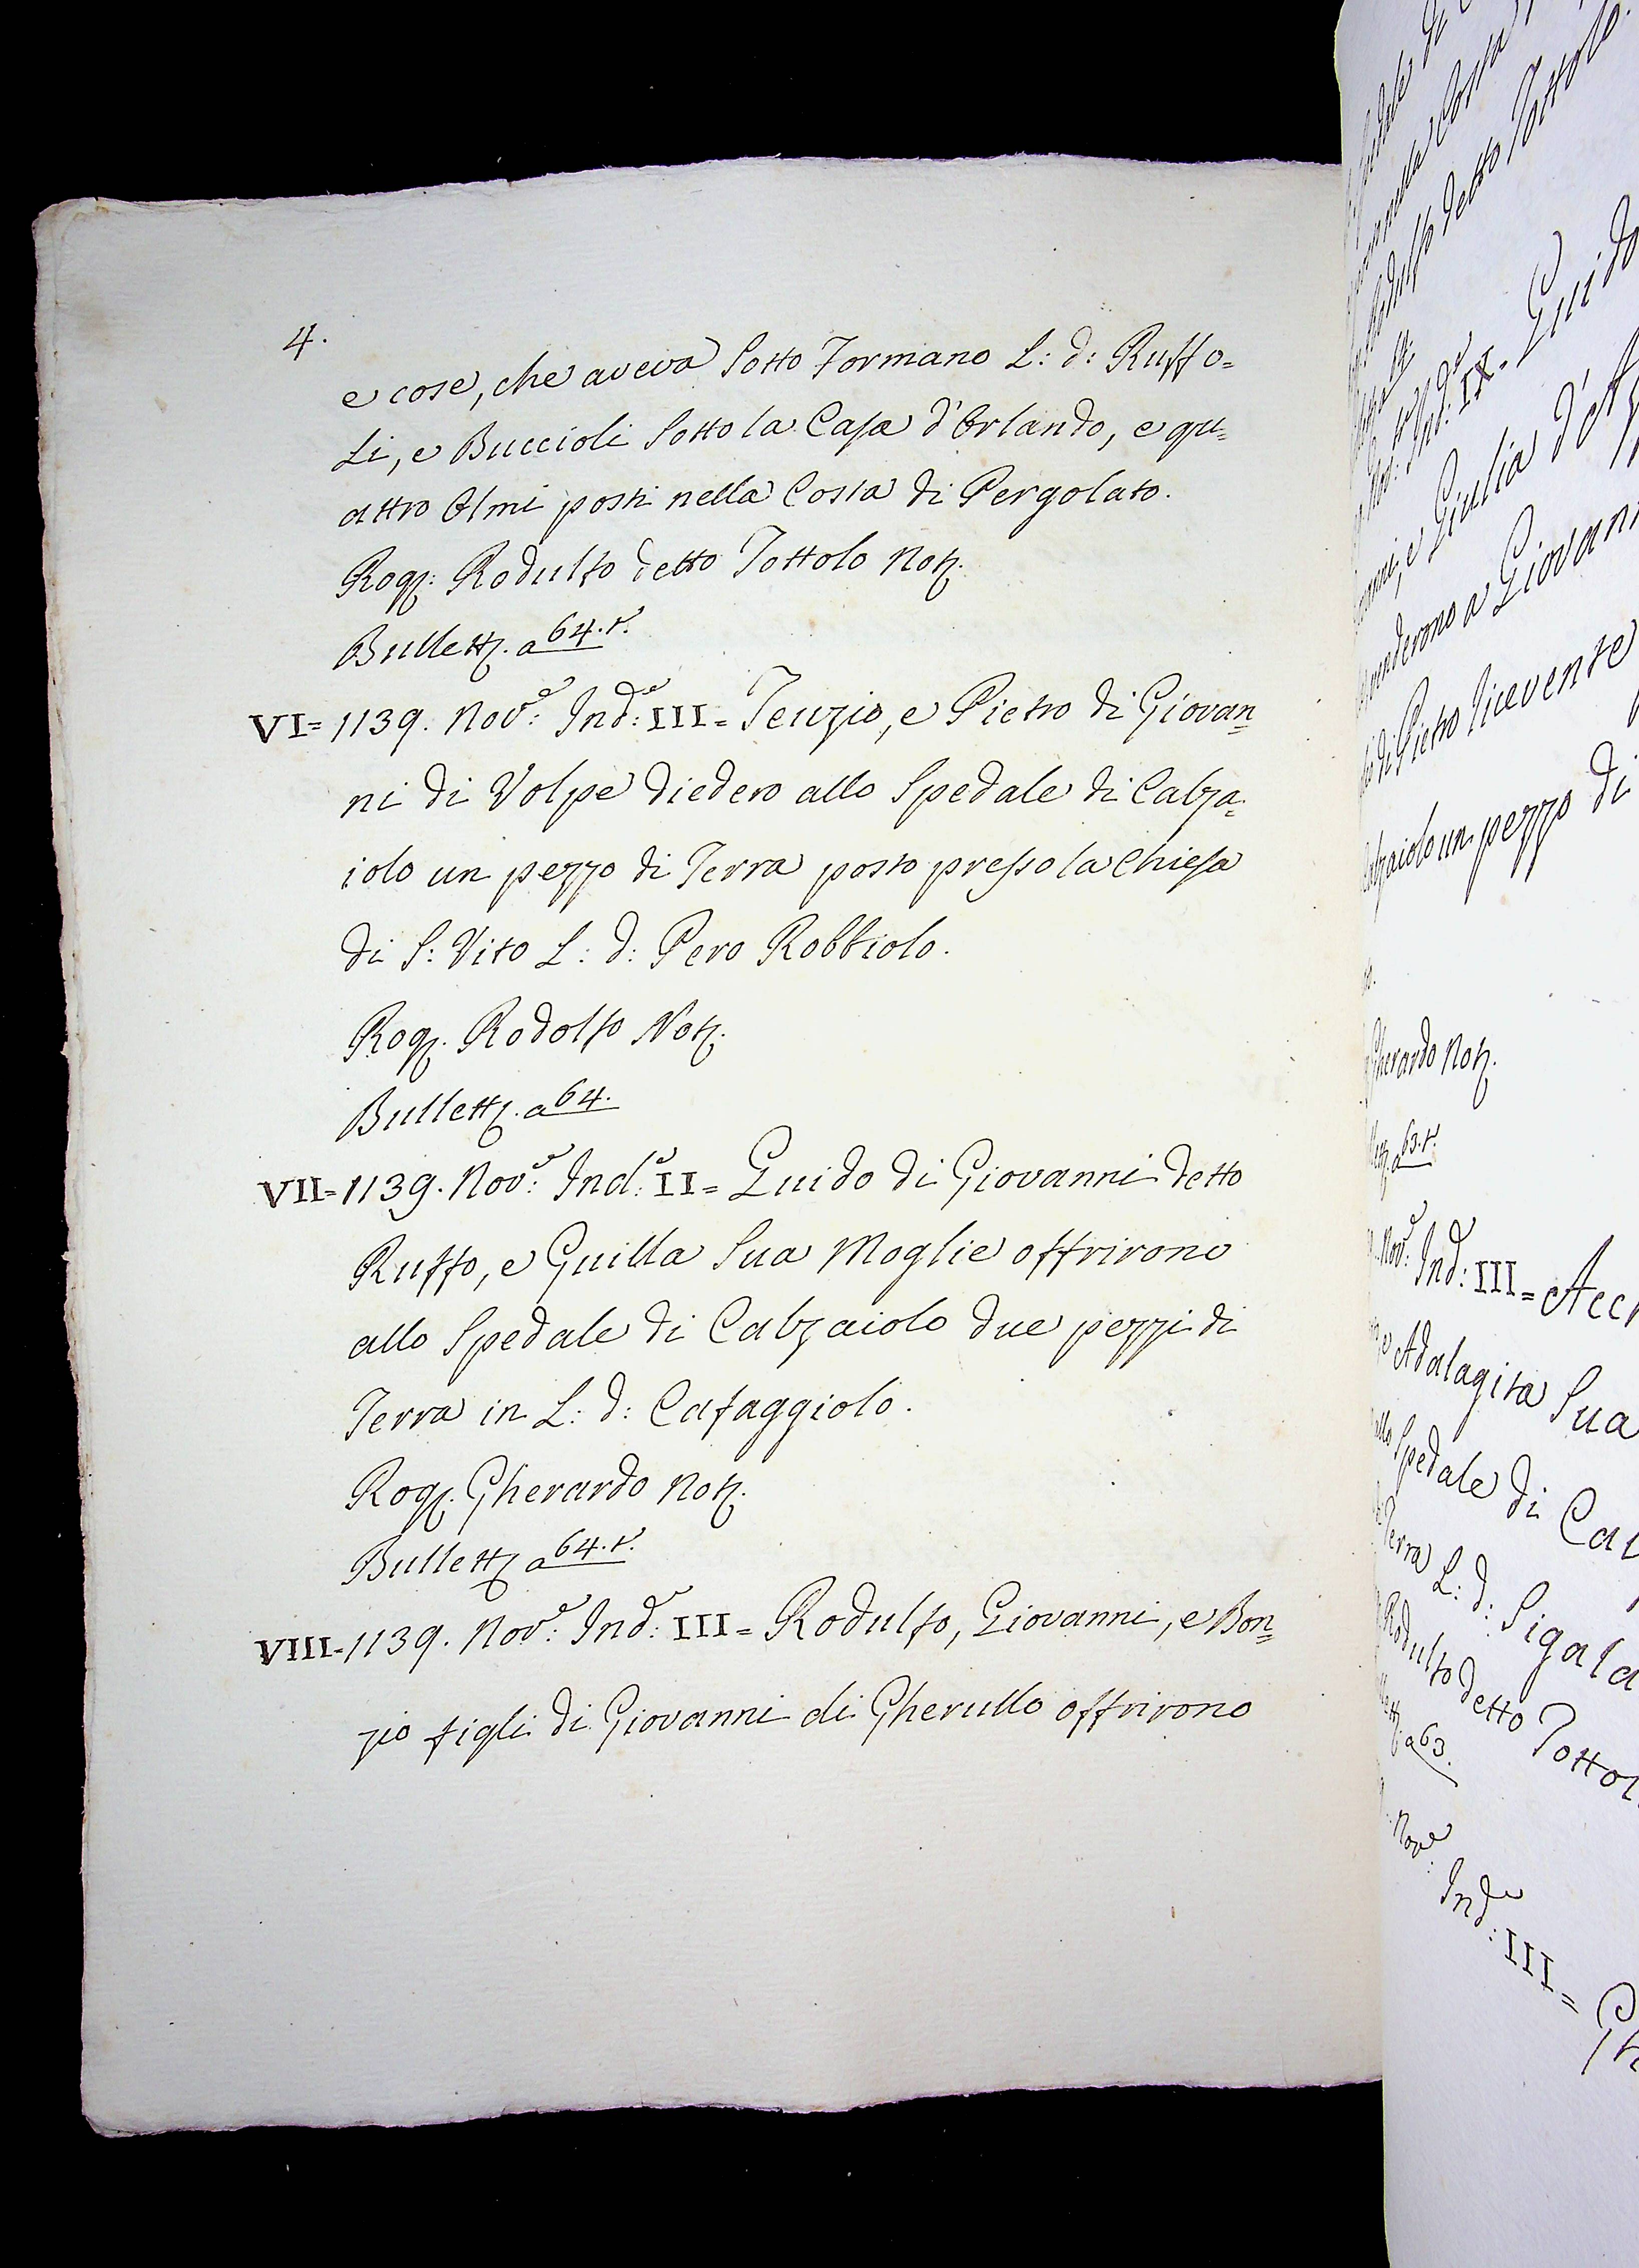 4.
e cose, che aveva Sotto Formano L: d: Ruffo=
li, e Buccioli Sotto la Casa d'Orlando, e qu=
attro Olmi posti nella Costa di Pergolato.
Rog: Rodulfo detto Tottolo Not.
Bullett. a 64. t.
VI= 1139. Nov.e Ind.e III= Teuzio, e Pietro di Giovan=
ni di Volpe diedero allo Spedale di Calza=
iolo un pezzo di Terra posto presso la Chiesa
di S: Vito L: d: Pero Robbiolo.
Rog. Rodolfo Not.
Bullett. a 64.
VII= 1139. Nov.e Ind.e II= Guido di Giovanni detto
Ruffo, e Guilla Sua Moglie offrirono
allo Spedale di Calzaiolo due pezzi di
Terra in L: d: Cafaggiolo.
Rog. Gherardo Not.
Bullett. a 64. t.
VIII= 1139. Nov.e Ind.e III= Rodulfo, Giovanni, e Bon=
zio figli di Giovanni di Gherullo offrirono
detto Tottolo.
Ind.e IX= Guido
e Giulia d'
venderono a Giovann
di Pietro ricevente
un pezzo di
Gherardo Not.
63. t.
Nov.e Ind.e III=
e Adalagita Sua
Spedale di Ca
Terra L: d: Sigala
Rodulfo detto Tottol
a 63.
Nov.e Ind.e III= Gh